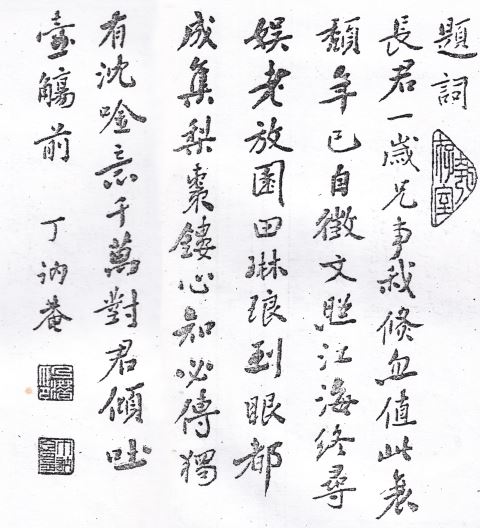 題詞
長君一歲兄事我倏值此衰
頹年已自徵文照江海終尋
娛老放園田琳琅到眼都
成集梨棗鏤心知必傳獨
有沈唫意千萬對君傾吐
壺觴前 丁訥菴